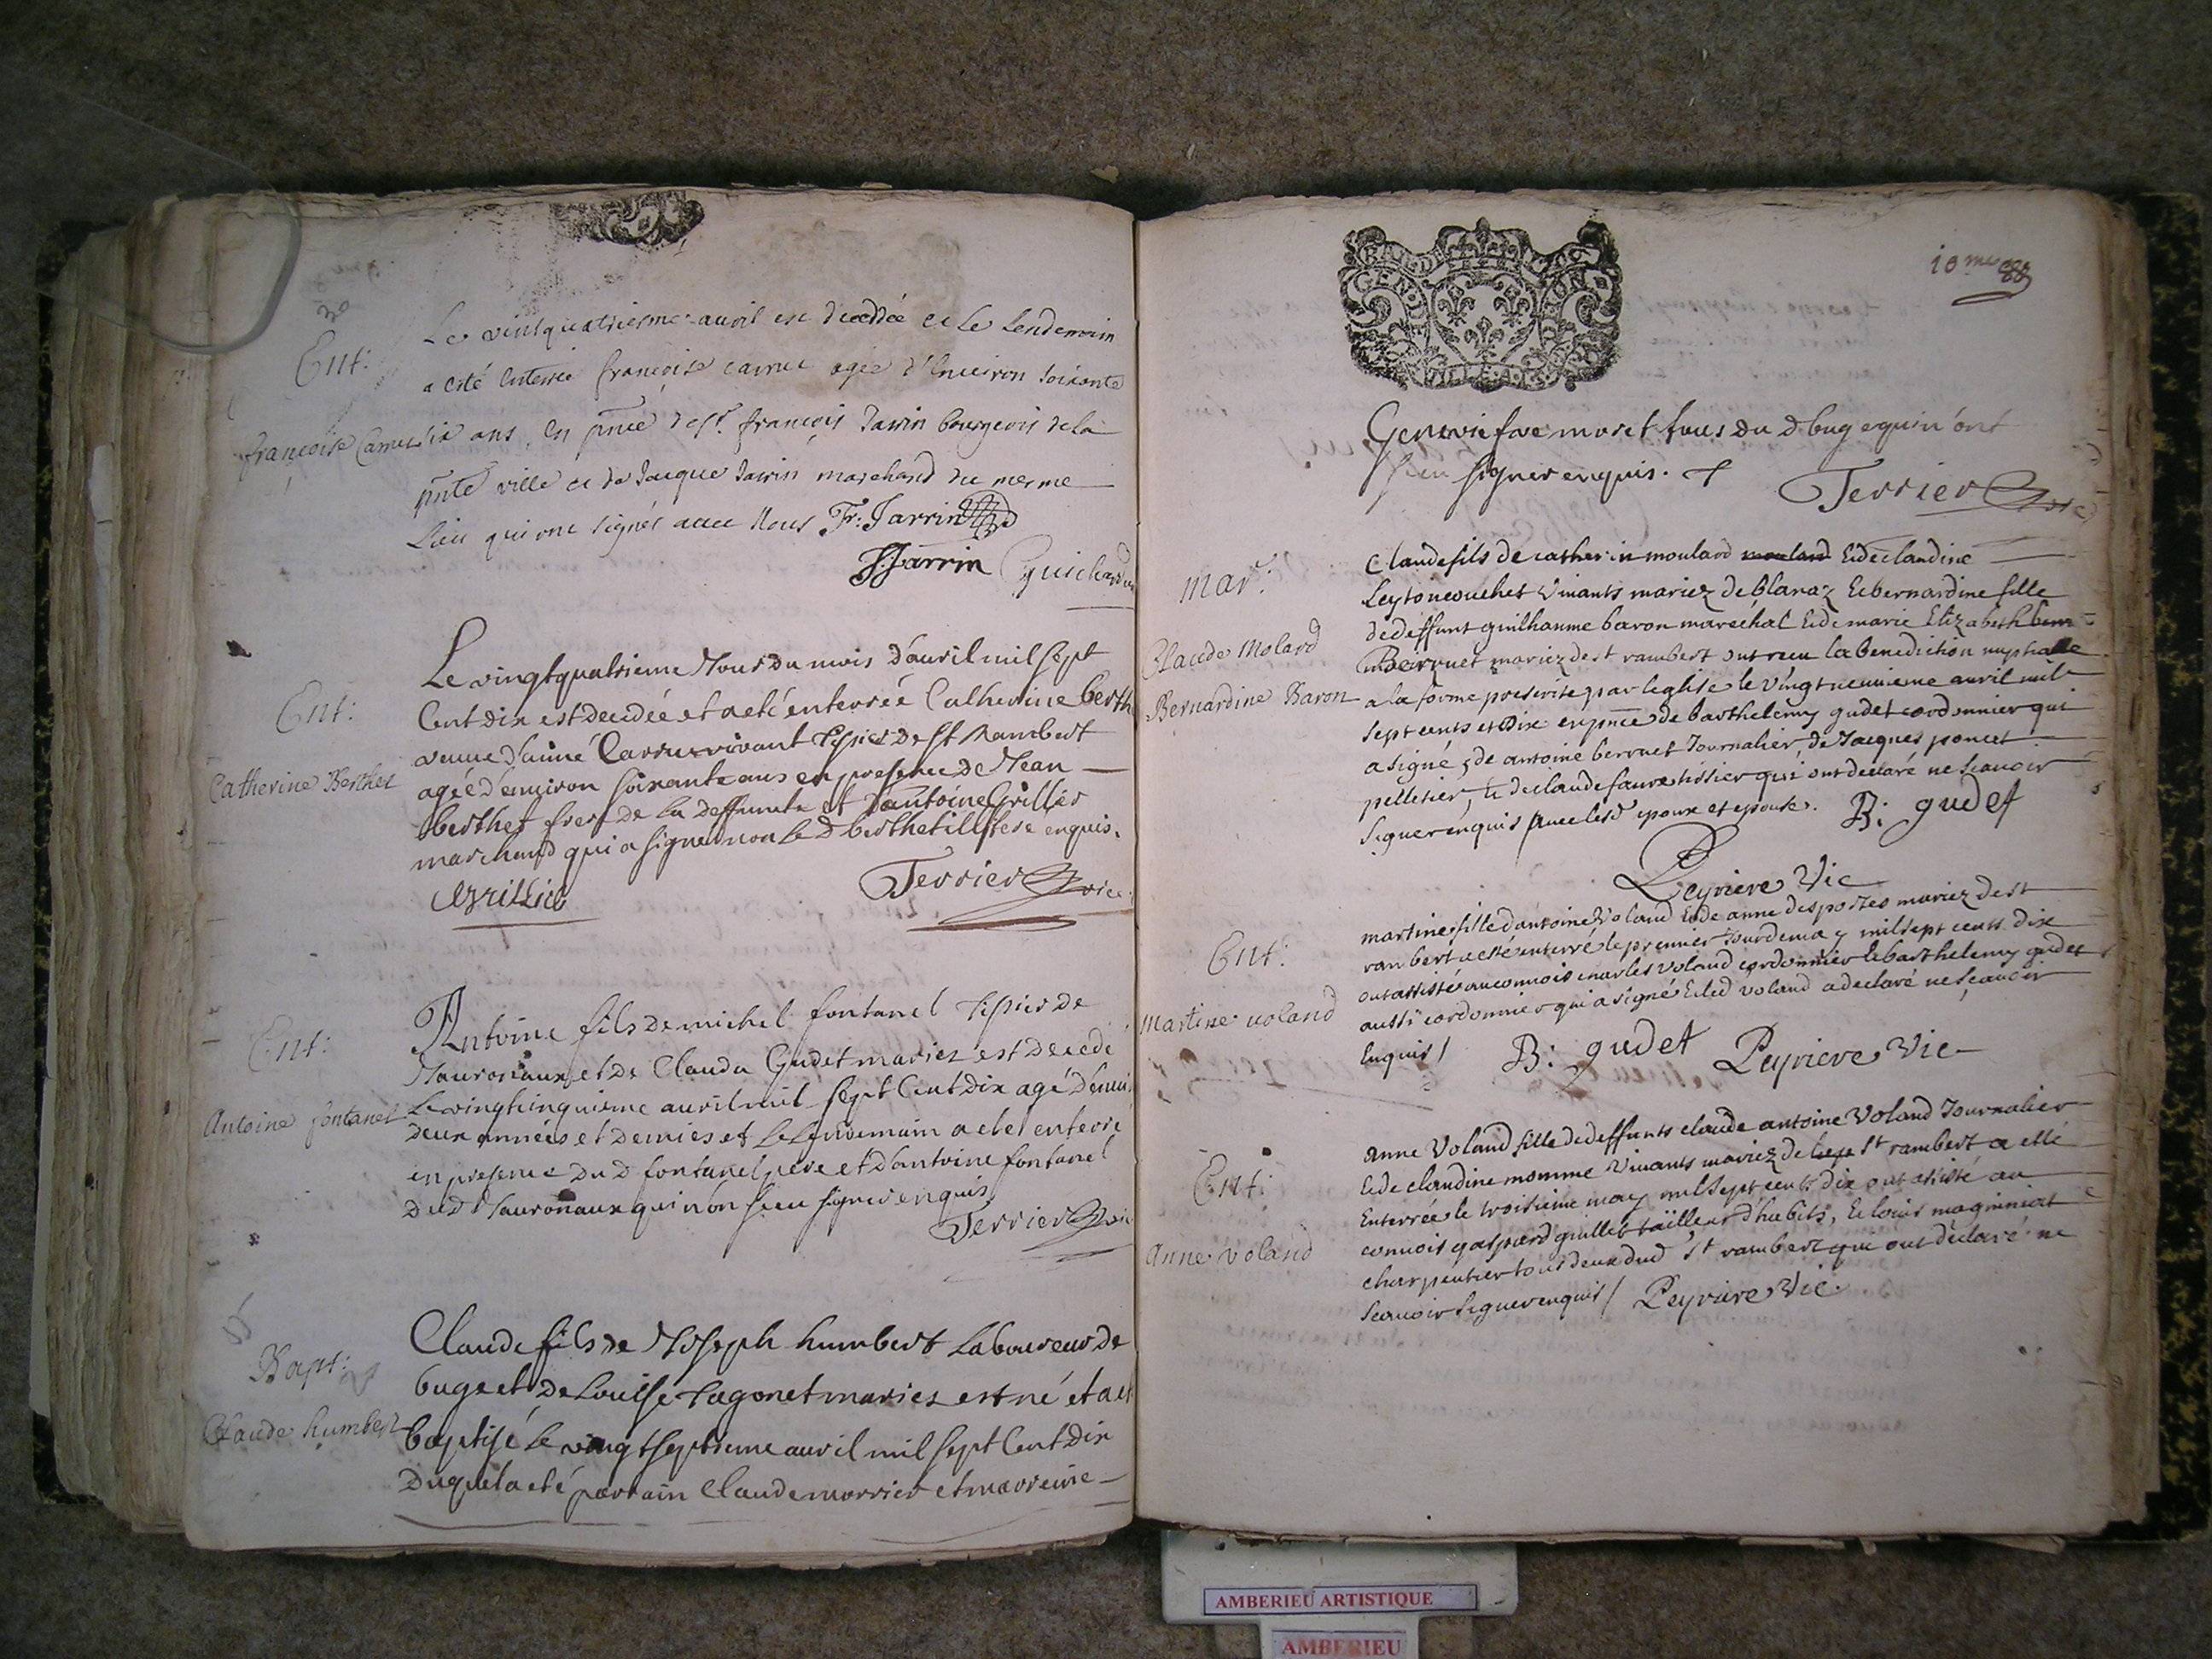 Ent:
françoise Carrut
Le vintquatriesme auril est decedée et Le Lendemain
a esté enterrée françoise carrut agée d'Enuiron soixante
dix ans, en pnce de sr. françois Jarrin bourgeois de la
pnte ville et de Jacque Jarrin marchand du mesme
Lieu qui ont signés auec Nous Fr: Jarrin
J: Jarrin Guichard
Ent:
Catherine Berthet
Le vingtquatrieme Jour du mois d'auril mil sept
Cent dix est decedée et a eté enterrée Catherine berth
veuve d'aimé Carru vivant tissier de St Rambert
agée d'enuiron soixante ans en presence de Jean
berthet frere de la deffunte et d'antoine Grillier
marchand qui a signé non le d berthet illitere enquis.
Grillie
Terrier vice
Ent:
Antoine fontanel
Antoine fils de michel fontanel tissier de
Jauronaux et de Clauda Gudet maries est decedé
Le vingtcinquieme auril mil sept Cent dix agé d'enui
deux années et demies et Le Lendemain a eté enterré
en presence du d fontanel pere et d'antoine fontanel
du d Jauronaux qui n'on sceu signer enquis
Terrier vic
Bapt:
Claude humbert
Claude fils de Joseph humbert Laboureur de
buges et de Louise tagonet maries est né et a et
baptisé le vingtseptieme auril mil sept Cent dix
duquel a eté parrain Claude morrier et marreine
10me
GENERALITE DE DIJON
Geneviefve moret tous du d buge qui n'ont
sceu signer enquis.
Terrier vic
Mar:
Claude Molard
Bernardine Baron
Claude fils de catherin moulard moulard et de claudine
Leyton couchet Viuants mariez de blanaz et bernardine fille
de deffunt guilhaume baron maréchal et de marie Elizabeth bern
berruet mariez de st rambert ont receu la benediction nuptialle
a la forme prescrite par leglise le Vingtneuuieme auril mil
sept cents et dix en pnce de barthelemy gudet cordonnier qui
a signé, de antoine berruet Journalier, de Jacques poncet
pelletier, et de claude faure tissier qui ont declaré ne scauoir
signer enquis auec lesd epoux et epouse. B: gudet
Peyriere Vic
Ent:
Martine voland
martine fille d'antoine Voland et de anne desportes mariez de st
rambert a esté enterré le premier Jour de may mil sept cents dix
ont assisté au conuois charles voland cordonnier et barthelemy gudet
aussi cordonnier qui a signé et led voland a declaré ne scauoir
enquis / B: gudet Peyriere Vic
Ent:
Anne Voland
anne Voland fille de deffunts claude antoine Voland Journalier
et de claudine momme Viuants mariez de St rambert a esté
Enterrée le troisieme may mil sept cents dix ont assisté au
conuois gaspard guillet tailleur d'habits, et louis magninist
charpentier tous deux dud St rambert qui ont déclaré ne
scauoir signer enquis / Peyriere Vic.
AMBERIEU ARTISTIQUE
AMBERIEU